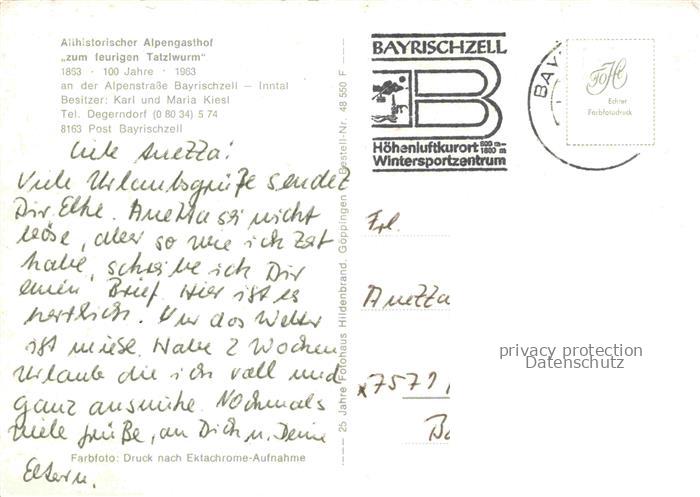 Allhistorischer Alpengasthof
„zum feurigen Tatzlwurm"
1863 · 100 Jahre · 1963
an der Alpenstraße Bayrischzell — Inntal
Besitzer: Karl und Maria Kiesl
Tel. Degerndorf (0 80 34) 5 74
8163 Post Bayrischzell
Liebe Anezza!
Viele Urlaubsgrüße sendet
Dir Elke. Anezza sei nicht
böse, aber so wie ich Zeit
habe, schreibe ich Dir
einen Brief. Hier ist es
herrlich. Nur das Wetter
ist miese. Habe 2 Wochen
Urlaub die ich voll und
ganz ausnutze. Nochmals
viele Grüße, an Dich u. Deine
Eltern.
Farbfoto: Druck nach Ektachrome-Aufnahme
25 Jahre Fotohaus Hildenbrand, Göppingen Bestell-Nr. 48 550 F
BAYRISCHZELL
B
Höhenluftkurort 800 m– 1800 m
Wintersportzentrum
BAY
FoHi
Echter
Farbfotodruck
Frl.
Anezza
7579
privacy protection
Datenschutz